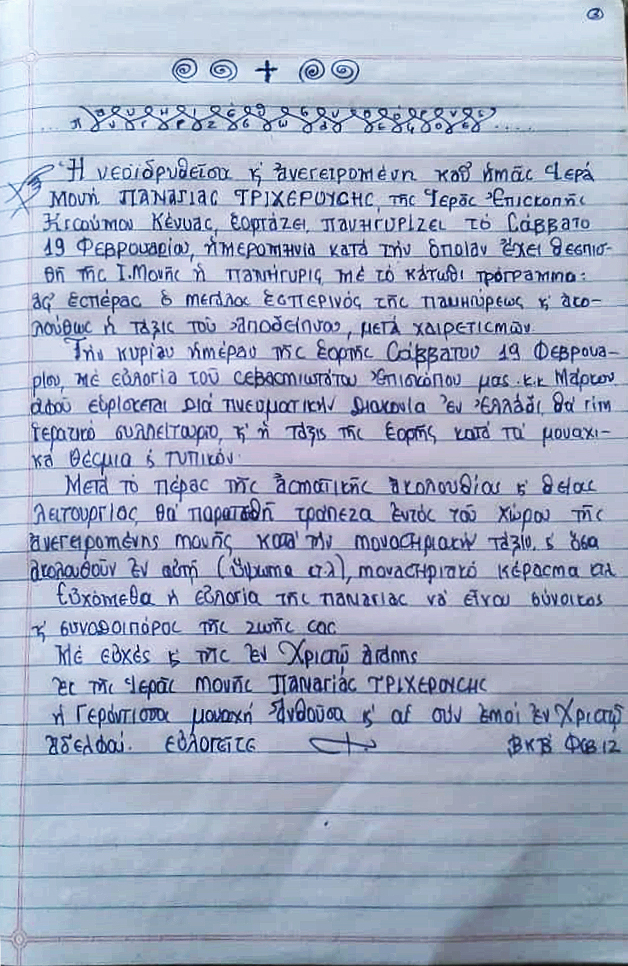 2
+
Ἡ νεοϊδρυθεῖσα κ' ἀνεγειρομένη καθ' ἡμᾶς Ἱερά
Μονή ΠΑΝΑΓΙΑΣ ΤΡΙΧΕΡΟΥΣΗΣ, τῆς Ἱερᾶς Ἐπισκοπῆς
Κισσούμου Κένυας, ἑορτάζει, πανηγυρίζει τό Σάββατο
19 Φεβρουαρίου, ἡμερομηνία κατά τήν ὁποίαν ἔχει θεσπισ-
θῆ τῆς Ἱ. Μονῆς ἡ πανήγυρις, μέ τό κάτωθι πρόγραμμα:
ἀφ' ἑσπέρας ὁ μεγάλος ἑσπερινός τῆς πανηγύρεως κ' ἀκο-
λούθως ἡ τάξις τοῦ ἀποδείπνου, μετά χαιρετισμῶν.
Τήν κυρίαν ἡμέραν τῆς ἑορτῆς Σάββατον 19 Φεβρουα-
ρίου, μέ εὐλογία τοῦ σεβασμιωτάτου Ἐπισκόπου μας κ.κ Μάρκου,
ἀφοῦ εὑρίσκεται διά πνευματικήν διακονία ἐν Ἑλλάδι, θά γίνῃ
ἱερατικό συλλείτουργο, κ' ἡ τάξις τῆς ἑορτῆς κατά τά μοναχι-
κά θέσμια κ τυπικόν.
Μετά τό πέρας τῆς ᾀσματικῆς ἀκολουθίας κ' θείας
λειτουργίας θά παρατεθῆ τράπεζα ἐντός τοῦ χώρου τῆς
ἀνεγειρομένης μονῆς κατά τήν μοναστηριακήν τάξιν, κ' ὅσα
ἀκολουθοῦν ἐν αὐτῇ (ὕψωμα κτλ), μοναστηριακό κέρασμα κτλ
Εὐχόμεθα ἡ εὐλογία τῆς Παναγίας νά εἶναι σύνοικος
κ' συνοδοιπόρος τῆς ζωῆς σας
Μέ εὐχές κ' τῆς ἐν Χριστῷ ἀγάπης
ἐκ τῆς Ἱερᾶς Μονῆς ΠΑΝΑΓΙΑΣ ΤΡΙΧΕΡΟΥΣΗΣ
ἡ Γερόντισσα μοναχή Ἀνθοῦσα κ' αἱ σύν ἐμοί ἐν Χριστῷ
ἀδελφαί. εὐλογεῖτε ΒΚΒ ΦΕΒ 12